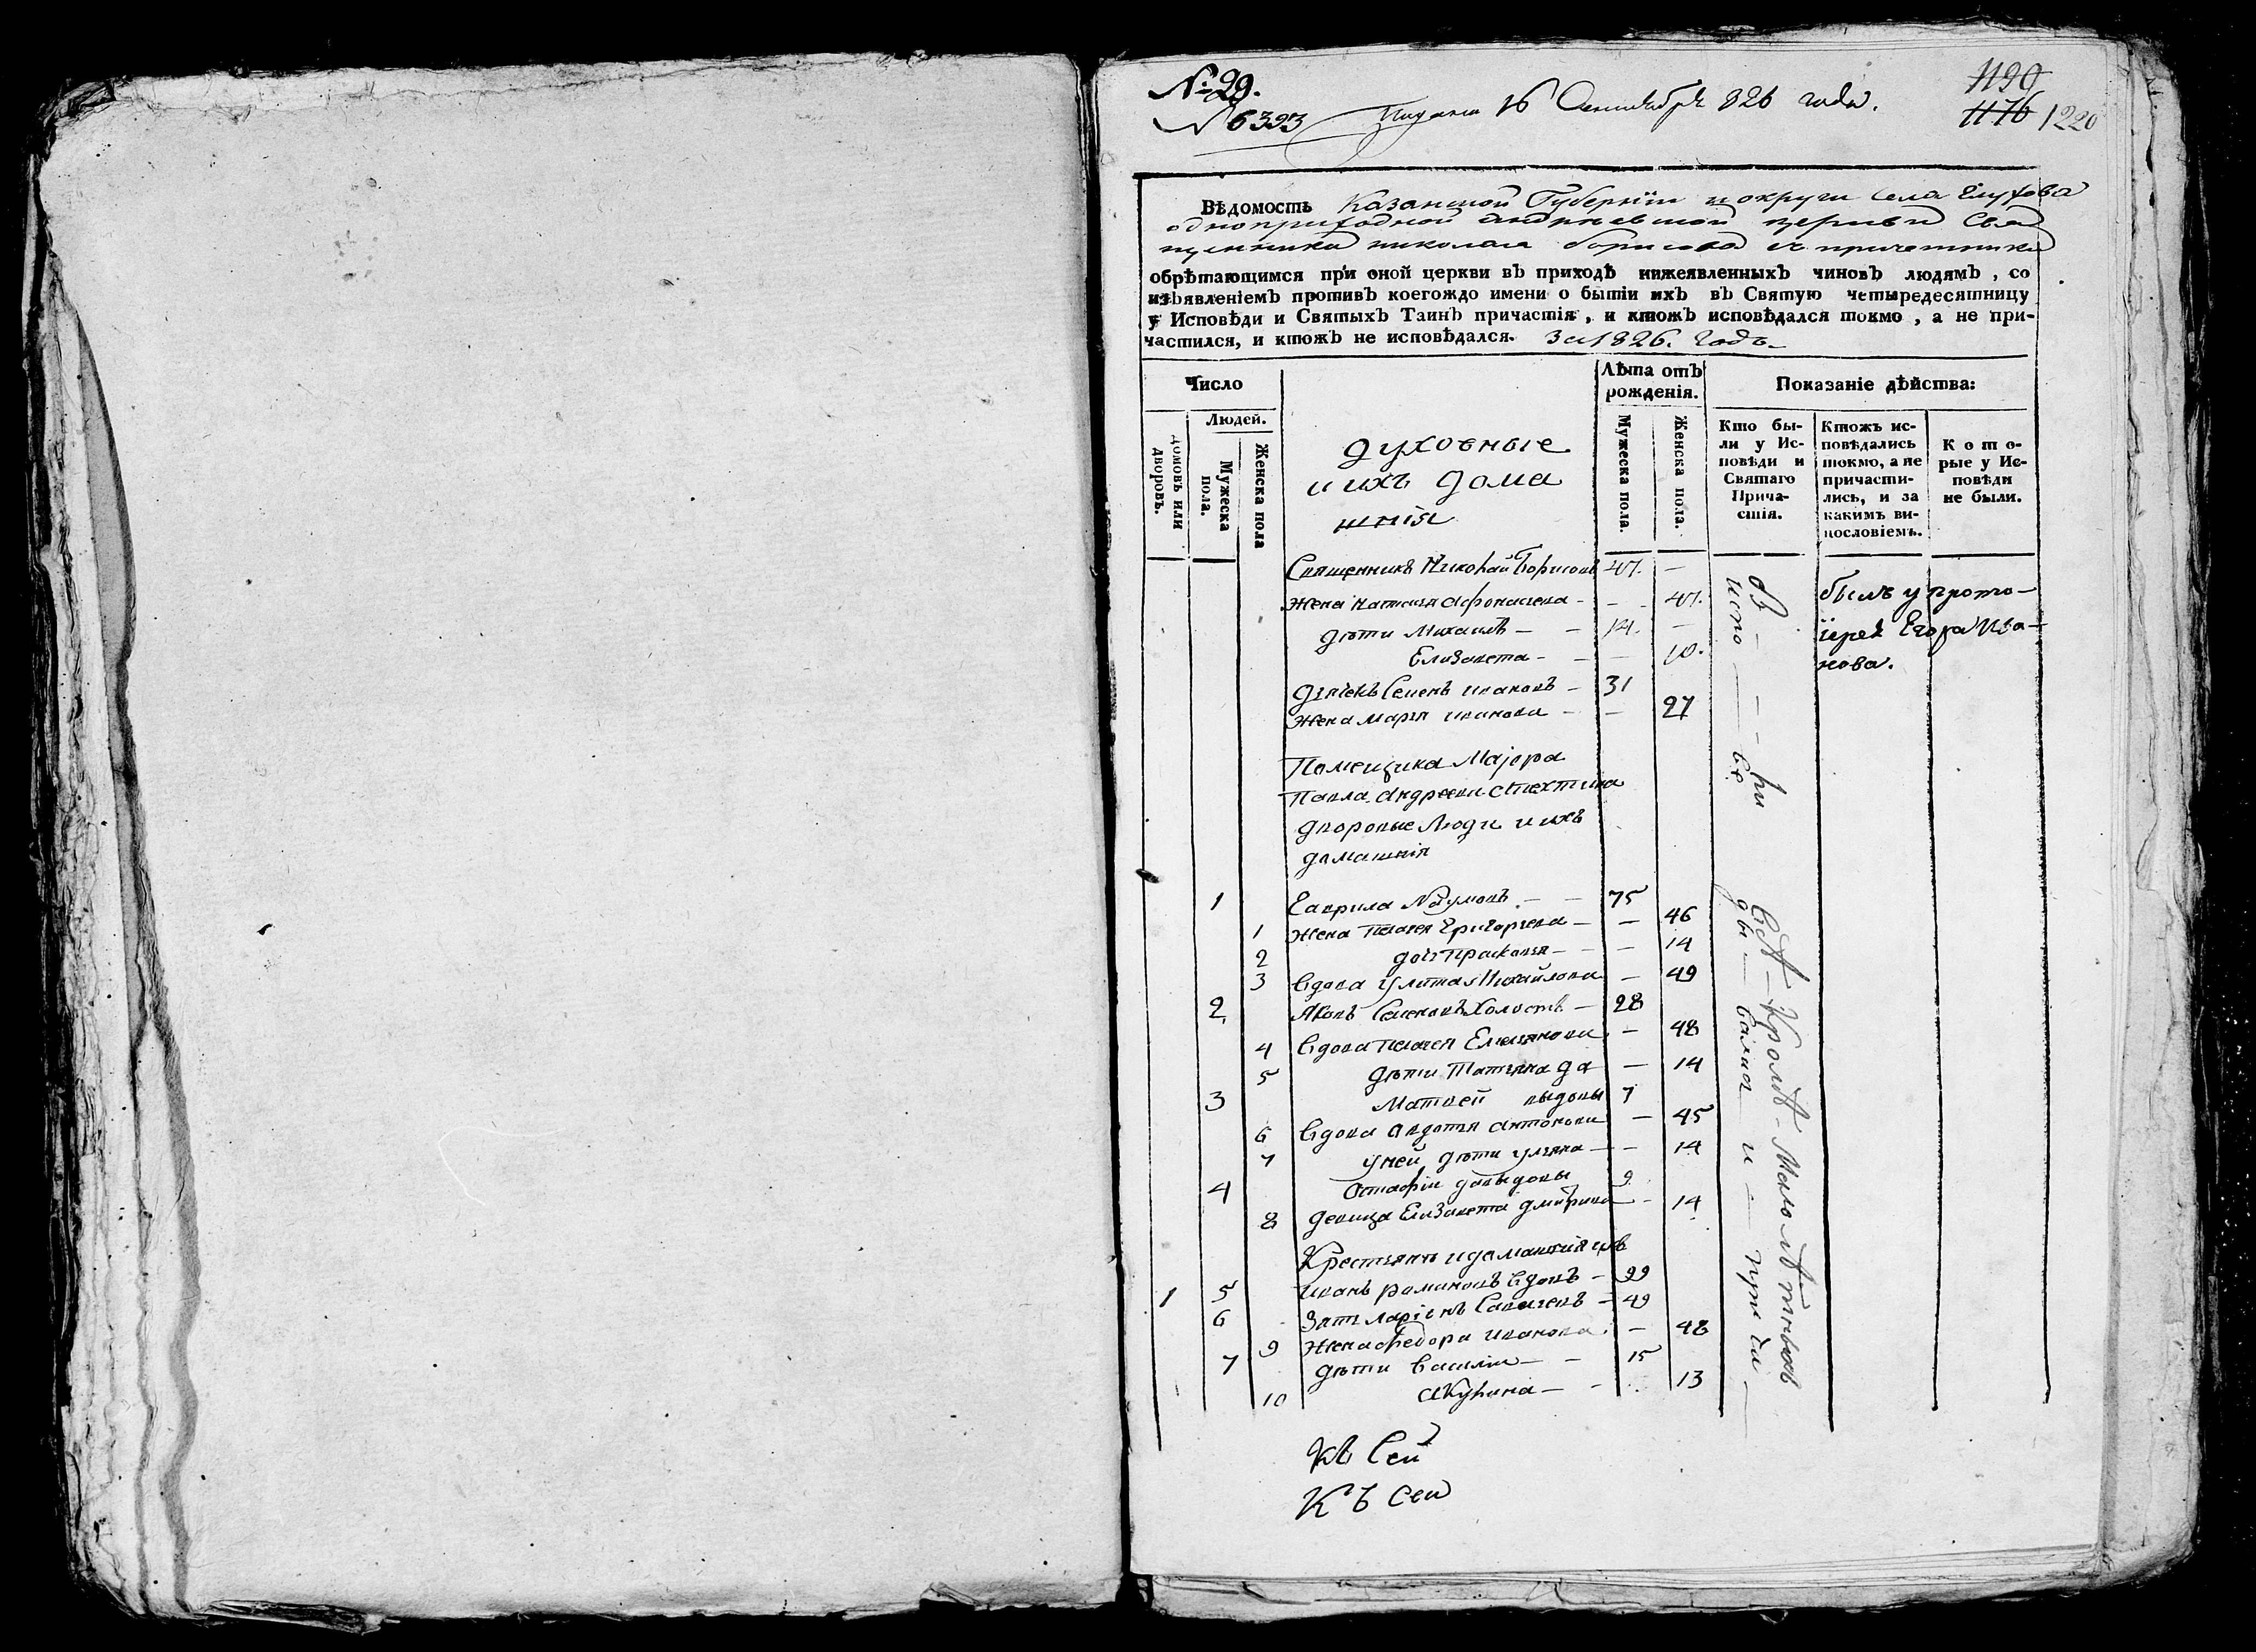 № 29.
№ 6393
Подана 16 Сентября 826 года.
1190
1176 1220
Вѣдомость Казанской Губерніи и округи села
одноприходной Андреевской церкви Свя
щенника николая борисова съ причетники
обрѣтающимся при оной церкви въ приходѣ нижеявленныхъ чиновъ людямъ, со
изъявленіемъ противъ коегождо имени о бытіи ихъ въ Святую четыредесятницу
у Исповѣди и Святыхъ Таинъ причастія, и ктожъ исповѣдался токмо, а не при-
частился, и ктожъ не исповѣдался. За 1826. Годъ.
Число
Людей.
домовъ или дворовъ.
Мужеска пола.
Женска пола
духовные
и ихъ дома
шнія
Лѣта отъ
рожденія.
Мужеска пола.
Женска пола.
Показаніе дѣйства:
Кто бы-
ли у Ис-
повѣди и
Святаго
Прича-
стія.
Ктожъ ис-
повѣдались
токмо, а не
причасти-
лись, и за
какимъ ви-
нословіемъ.
К о т о-
рые у Ис-
повѣди
не были.
Священникъ Николай Борисовъ 47. —
жена наталья афонасьева - - 47.
дѣти Михаилъ — — 14. —
Елизавета - — — 10.
былъ у прото-
іерея Егора Ива-
нова.
дьячекъ Семенъ ивановъ — 31
жена марья иванова — — 27
Помещика Маіора
Павла андреева
дворовые люди и ихъ
домашнія
1 Гаврила Наумовъ — — 75
1 жена пелагея Григорьева — — 46
2 дочь прасковья — — 14
3 Вдова улита Михайлова — 49
2 Яковъ Семеновъ Холостъ — 28
4 Вдова пелагея Емельянова - 48
5 дѣти Татьяна да — 14
3 Матвей 7
6 Вдова авдотья антонова — 45
7 у ней дѣти ульяна — — 14
4 давыдовы 9
8 девица Елизавета дмитриева — 14
Крестьянѣ и домашнія ихъ
1 5 иванъ романовъ вдовъ — 99
6 зять — 49
9 жена иванова. — 48
7 дѣти василій — — 15
10 акулина — - 13
всѣ — кромѣ — малолѣтныхъ
къ сей
Къ сей